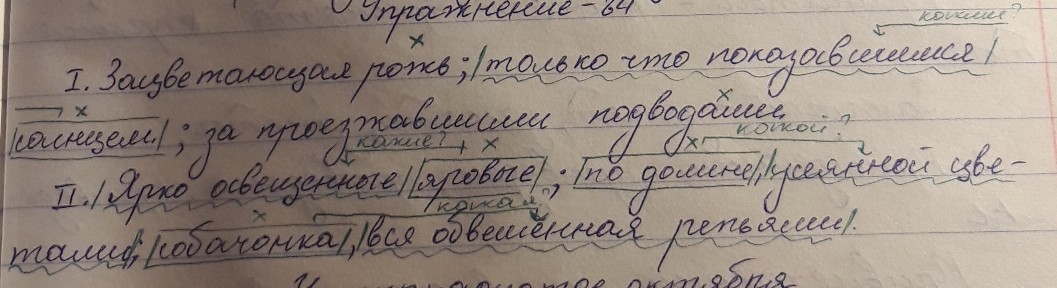 Упражнение - 64
каким?
I. Зацветающая рожь; только что показавшимся
солнцем; за проезжавшими подводами
какие? какой?
II. Ярко освещенные яровые; по долине, усеянной цве-
какая?
тами; собачонка, вся обвешенная репьями.
октября